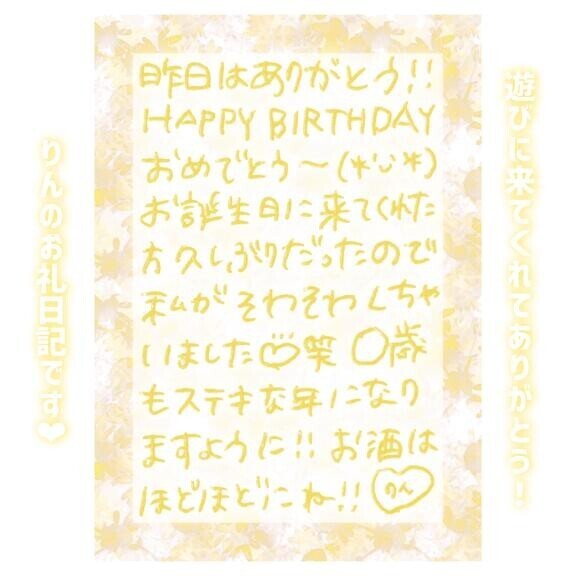 遊びに来てくれてありがとう！
昨日はありがとう!!
HAPPY BIRTHDAY
おめでとう〜(*ᵕᴗᵕ*)
お誕生日に来てくれた
方久しぶりだったので
私がそわそわしちゃ
いました♡笑 〇歳
もステキな年になり
ますように!! お酒は
ほどほどにね!! りん
りんのお礼日記です❤